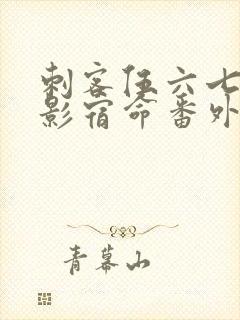 刺客伍六七
影宿命番外
青幕山